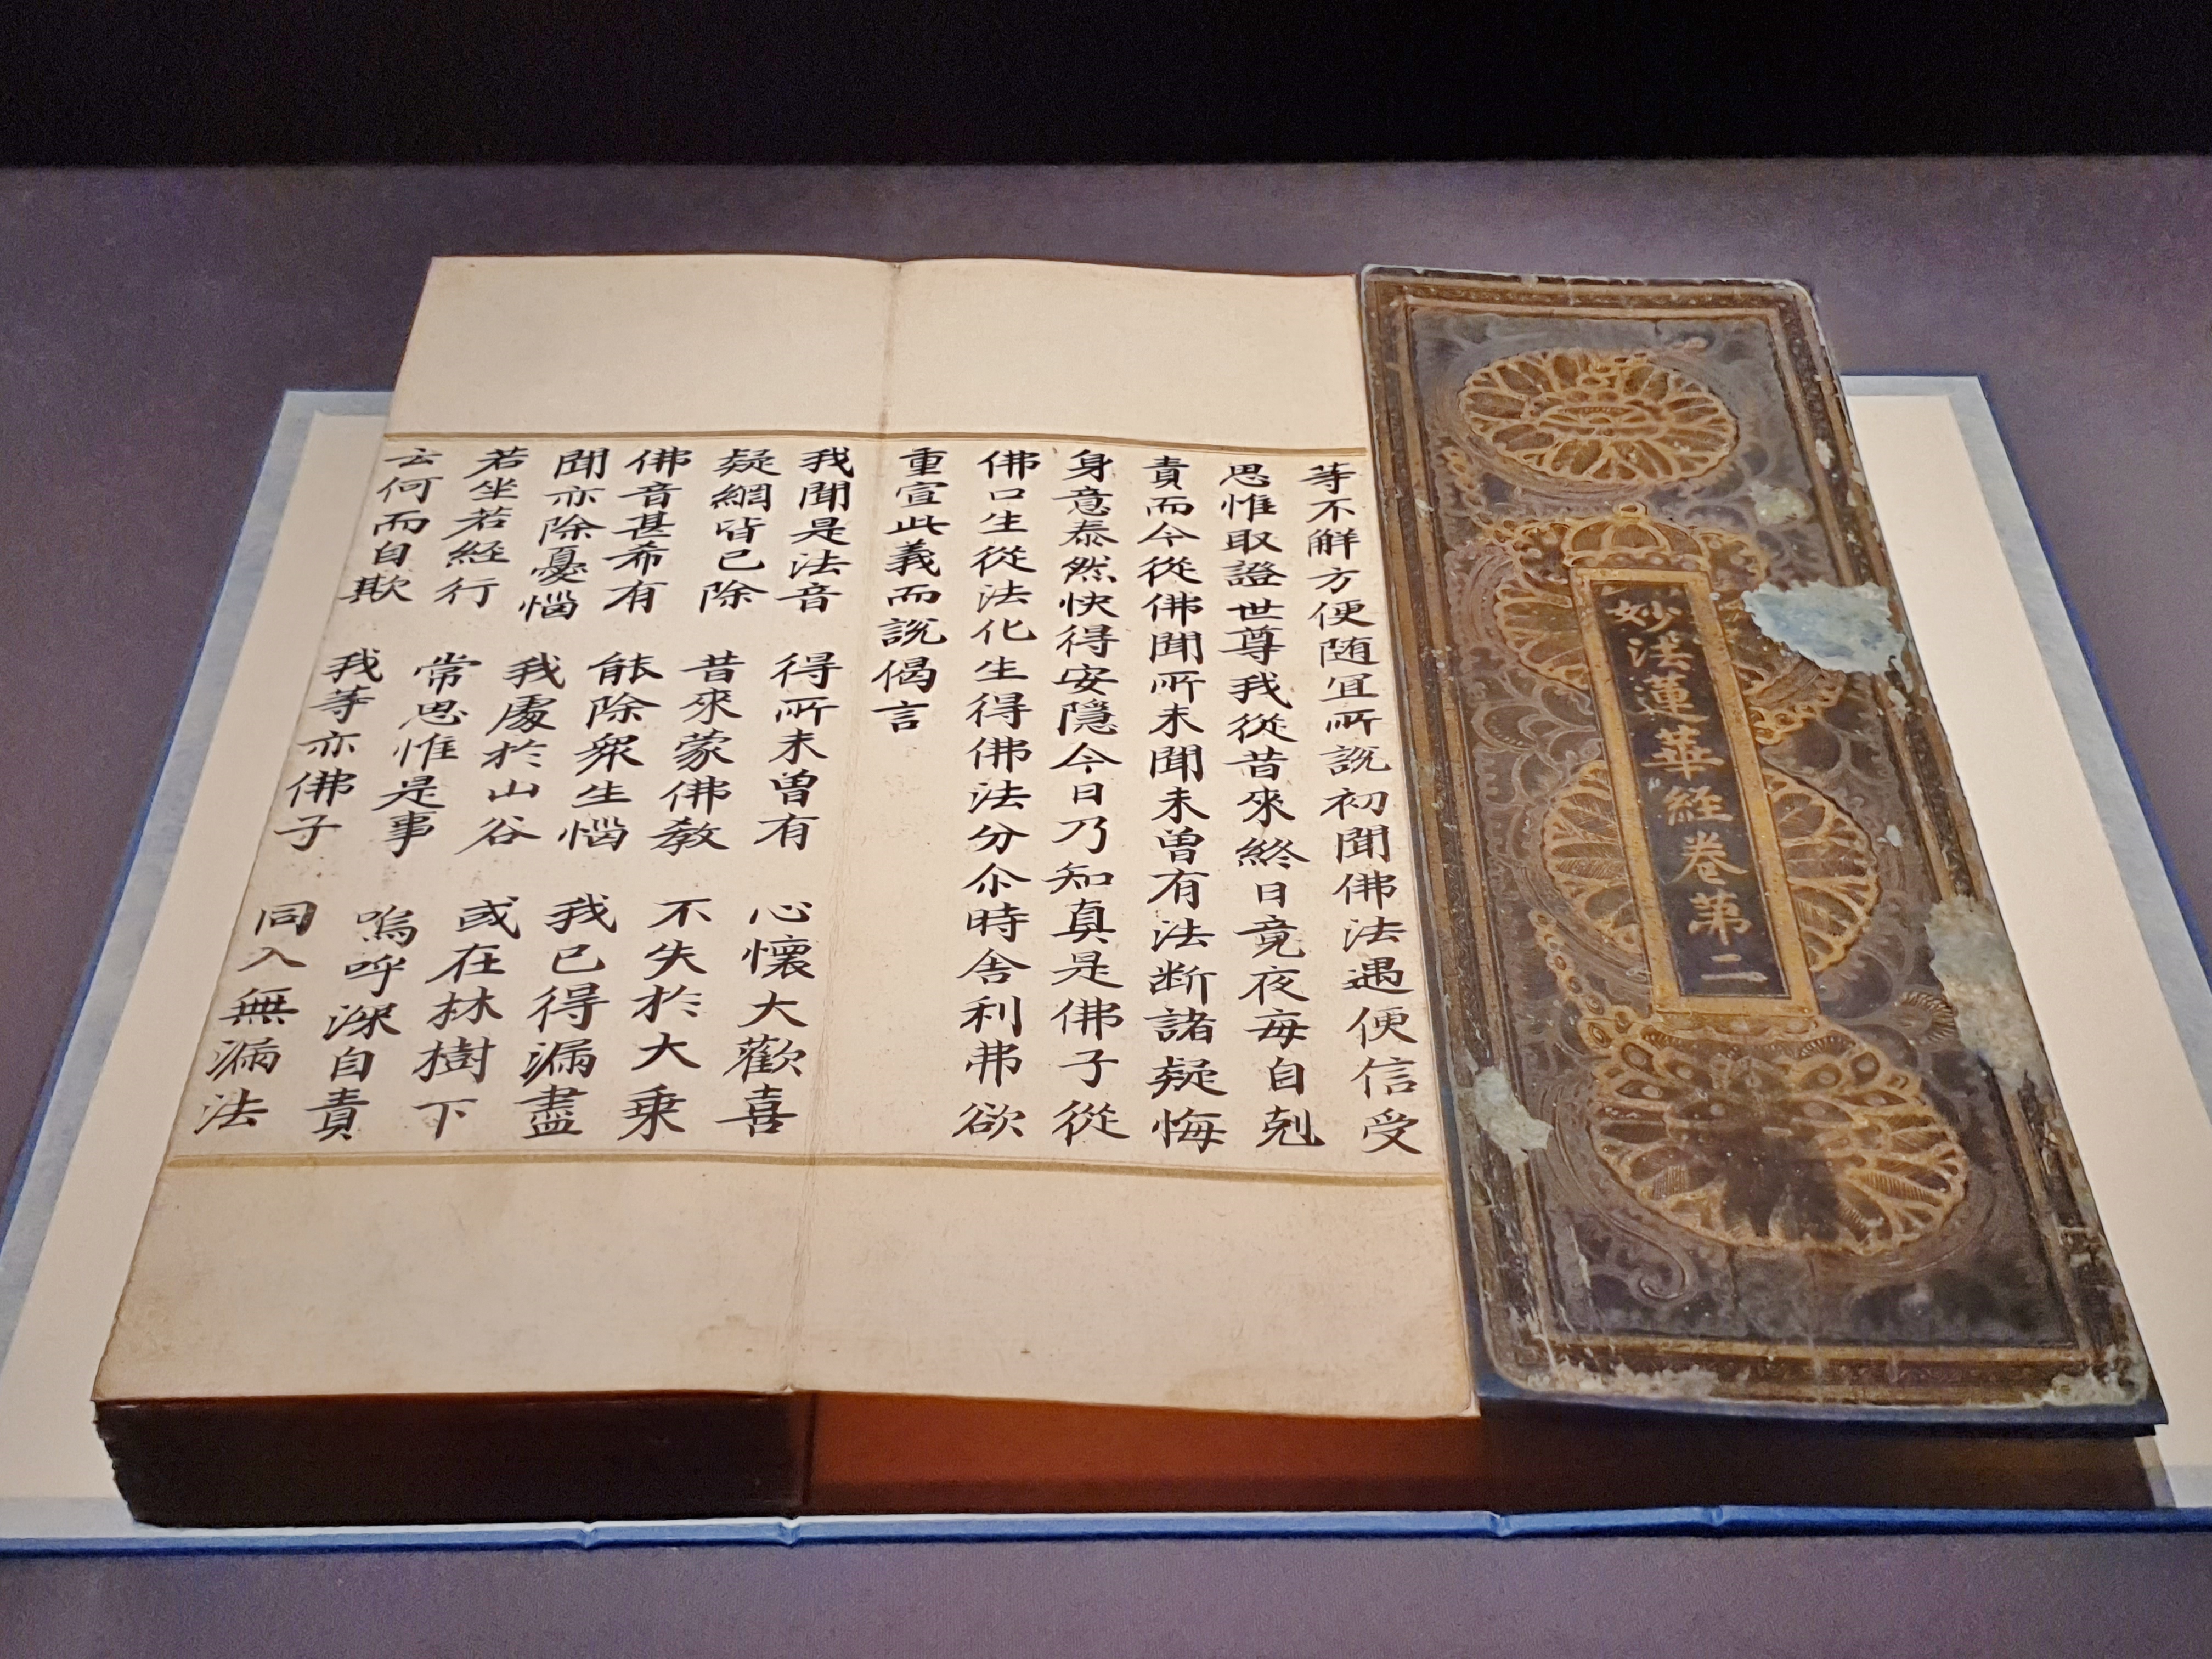 妙法蓮華經卷第二
等不解方便随冝所說初聞佛法遇便信受
思惟取證世尊我從昔來終日竟夜每自剋
責而今從佛聞所未聞未曽有法断諸疑悔
身意泰然快得安隱今日乃知真是佛子從
佛口生從法化生得佛法分尒時舍利弗欲
重宣此義而說偈言
我聞是法音 得所未曽有 心懷大歡喜
疑網皆已除 昔來蒙佛教 不失於大乗
佛音甚希有 能除衆生惱 我已得漏盡
聞亦除憂惱 我處於山谷 或在林樹下
若坐若經行 常思惟是事 嗚呼深自責
云何而自欺 我等亦佛子 同入無漏法